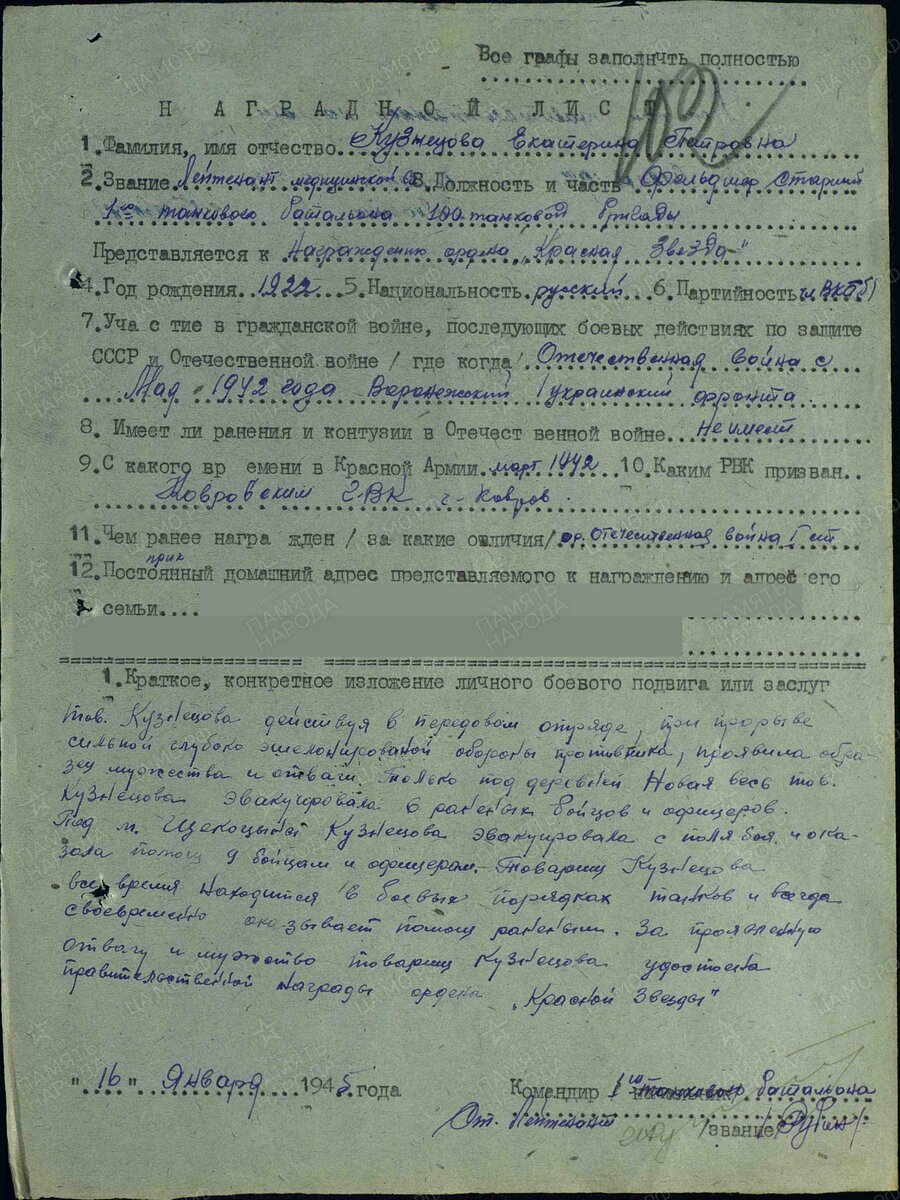 Все графы заполнчть полностью
Н А Г Р А Д Н О Й Л И С Т
1. Фамилия, имя отчество. Кузнецова Екатерина Петровна
2. Звание Лейтенант медицинской С 3. Должность и часть Фельдшер старший
1го танкового батальона 100 танковой бригады
Представляется к награждению ордена "Красная Звезда"
4. Год рождения. 1922 5. Национальность русский 6. Партийность чл ВКП(б)
7. Уча с тие в гражданской войне, последующих боевых действиях по защите
СССР и Отечественной войне / где когда/ Отечественная война с
Мая 1942 года Воронежский 1 украинский фронта.
8. Имеет ли ранения и контузии в Отечест венной войне. Не имеет
9. С какого вр емени в Красной Армии. март 1942 10. Каким РВК призван..
Ковровским ГВК г. Ковров.
11. Чем ранее награ жден / за какие отличия/ ор. Отечественная война I ст
прик
12. Постоянный домашний адрес представляемого к награждению и адрес его
семьи....
1. Краткое, конкретное изложение личного боевого подвига или заслуг
Тов. Кузнецова действуя в передовом отряде, при прорыве
сильной глубоко эшелонированой обороны противника, проявила обра-
зец мужества и отваги. Только под деревней Новая весь тов.
Кузнецова эвакуировала 6 раненых бойцов и офицеров.
Под м. Щекоцыны Кузнецова эвакуировала с поля боя и ока-
зала помощ 9 бойцам и офицерам. Товарищ Кузнецова
все время находится в боевых порядках танков и всегда
своевременно оказывает помощ раненым. За проявленную
отвагу и мужество товарищ Кузнецова удостоена
правительственной награды ордена "Красной Звезды"
"16" Января 1945 года
Командир 1го танкового батальона
Ст. Лейтенант /звание/ /Рубин/
ЦА МО РФ
ПАМЯТЬ НАРОДА